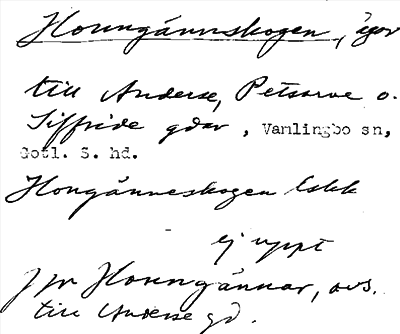 Horngännskogen, ägor
till Anderse, Petsarve o.
Siffride gdar, Vamlingbo sn,
Gotl. S. hd.
Horngänneskogen Eskk
ej uppt
Jfr Horngännar, avs.
till Anderse gd.